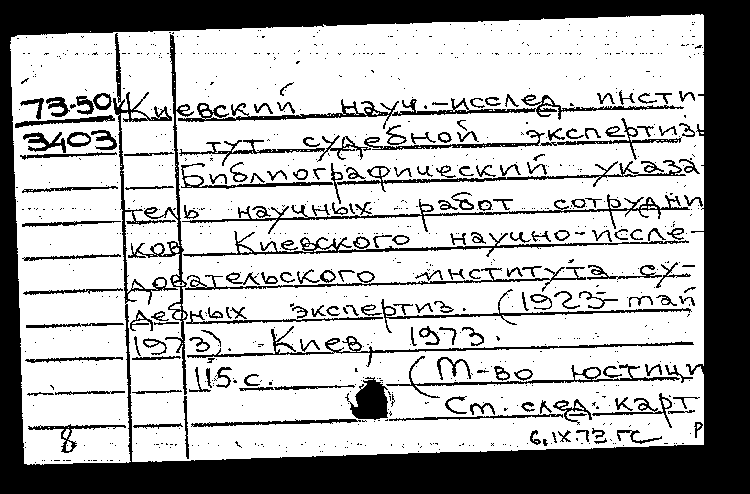 73-50к Киевский науч.-исслед. инсти-
3403 тут судебной экспертизы
Библиографический указа
тель научных работ сотрудни
ков Киевского научно-иссле-
довательского института су-
дебных экспертиз. (1923-май
1973). Киев, 1973.
115.с. (М-во юстици
См. след. карт
8 6.IX.73 гс Р